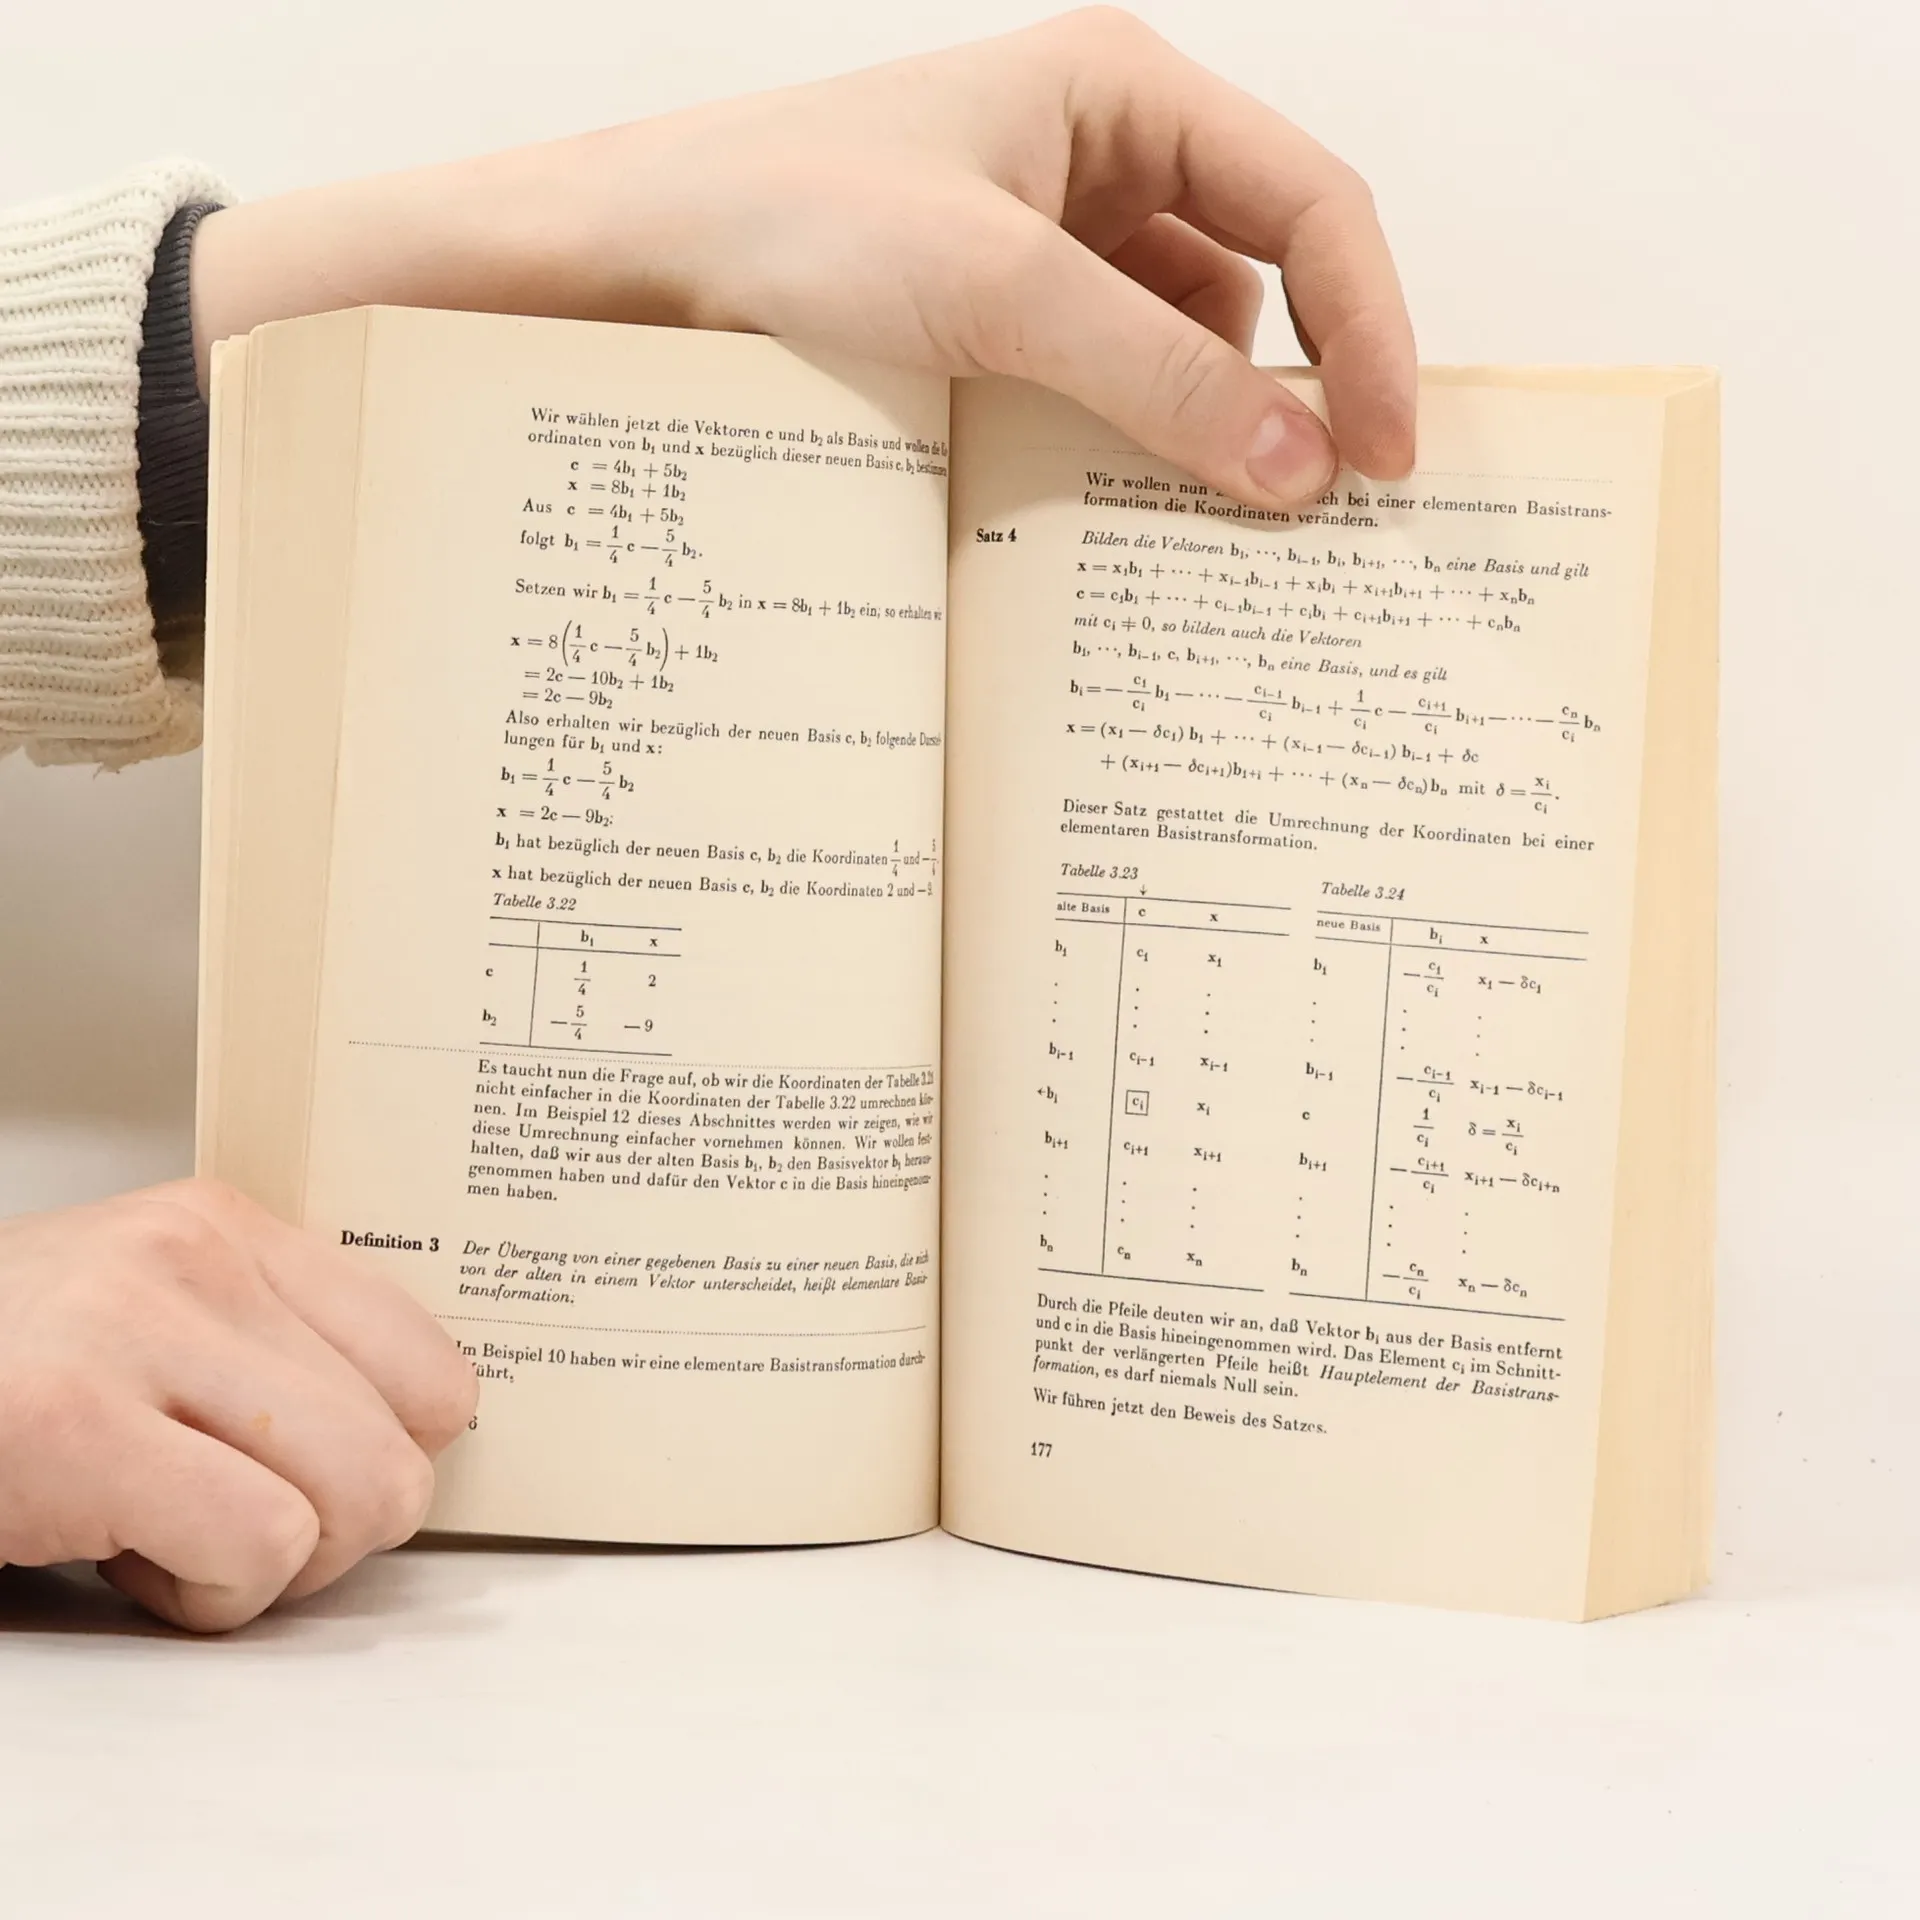 Wir wählen jetzt die Vektoren c und b₂ als Basis und wollen die Ko
ordinaten von b₁ und x bezüglich dieser neuen Basis c, b₂ bestimmen
c = 4b₁ + 5b₂
x = 8b₁ + 1b₂
Aus c = 4b₁ + 5b₂
folgt b₁ = 1/4 c — 5/4 b₂.
Setzen wir b₁ = 1/4 c — 5/4 b₂ in x = 8b₁ + 1b₂ ein, so erhalten wir
x = 8(1/4 c — 5/4 b₂) + 1b₂
= 2c — 10b₂ + 1b₂
= 2c — 9b₂
Also erhalten wir bezüglich der neuen Basis c, b₂ folgende Darstel
lungen für b₁ und x:
b₁ = 1/4 c — 5/4 b₂
x = 2c — 9b₂:
b₁ hat bezüglich der neuen Basis c, b₂ die Koordinaten 1/4 und — 5/4
x hat bezüglich der neuen Basis c, b₂ die Koordinaten 2 und —9
Tabelle 3.22
b₁ x
c 1/4 2
b₂ — 5/4 — 9
Es taucht nun die Frage auf, ob wir die Koordinaten der Tabelle 3.21
nicht einfacher in die Koordinaten der Tabelle 3.22 umrechnen kön-
nen. Im Beispiel 12 dieses Abschnittes werden wir zeigen, wie wir
diese Umrechnung einfacher vornehmen können. Wir wollen fest-
halten, daß wir aus der alten Basis b₁, b₂ den Basisvektor b₁ heraus-
genommen haben und dafür den Vektor c in die Basis hineingenom-
men haben.
Definition 3 Der Übergang von einer gegebenen Basis zu einer neuen Basis, die sich
von der alten in einem Vektor unterscheidet, heißt elementare Basis-
transformation.
Im Beispiel 10 haben wir eine elementare Basistransformation durch-
führt.
6
Wir wollen nun ch bei einer elementaren Basistrans-
formation die Koordinaten verändern.
Satz 4 Bilden die Vektoren b₁, ···, bᵢ₋₁, bᵢ, bᵢ₊₁, ···, bₙ eine Basis und gilt
x = x₁b₁ + ··· + xᵢ₋₁bᵢ₋₁ + xᵢbᵢ + xᵢ₊₁bᵢ₊₁ + ··· + xₙbₙ
c = c₁b₁ + ··· + cᵢ₋₁bᵢ₋₁ + cᵢbᵢ + cᵢ₊₁bᵢ₊₁ + ··· + cₙbₙ
mit cᵢ ≠ 0, so bilden auch die Vektoren
b₁, ···, bᵢ₋₁, c, bᵢ₊₁, ···, bₙ eine Basis, und es gilt
bᵢ = — c₁/cᵢ b₁ — ··· — cᵢ₋₁/cᵢ bᵢ₋₁ + 1/cᵢ c — cᵢ₊₁/cᵢ bᵢ₊₁ — ··· — cₙ/cᵢ bₙ
x = (x₁ — δc₁) b₁ + ··· + (xᵢ₋₁ — δcᵢ₋₁) bᵢ₋₁ + δc
+ (xᵢ₊₁ — δcᵢ₊₁)bᵢ₊ᵢ + ··· + (xₙ — δcₙ)bₙ mit δ = xᵢ/cᵢ.
Dieser Satz gestattet die Umrechnung der Koordinaten bei einer
elementaren Basistransformation.
Tabelle 3.23
↓
alte Basis c x
b₁ c₁ x₁
. . .
. . .
. . .
bᵢ₋₁ cᵢ₋₁ xᵢ₋₁
←bᵢ cᵢ xᵢ
bᵢ₊₁ cᵢ₊₁ xᵢ₊₁
. . .
. . .
. . .
bₙ cₙ xₙ
Tabelle 3.24
neue Basis bᵢ x
b₁ — c₁/cᵢ x₁ — δc₁
. . .
. . .
. . .
bᵢ₋₁ — cᵢ₋₁/cᵢ xᵢ₋₁ — δcᵢ₋₁
c 1/cᵢ δ = xᵢ/cᵢ
bᵢ₊₁ — cᵢ₊₁/cᵢ xᵢ₊₁ — δcᵢ₊ₙ
. . .
. . .
. . .
bₙ — cₙ/cᵢ xₙ — δcₙ
Durch die Pfeile deuten wir an, daß Vektor bᵢ aus der Basis entfernt
und c in die Basis hineingenommen wird. Das Element cᵢ im Schnitt-
punkt der verlängerten Pfeile heißt Hauptelement der Basistrans-
formation, es darf niemals Null sein.
Wir führen jetzt den Beweis des Satzes.
177